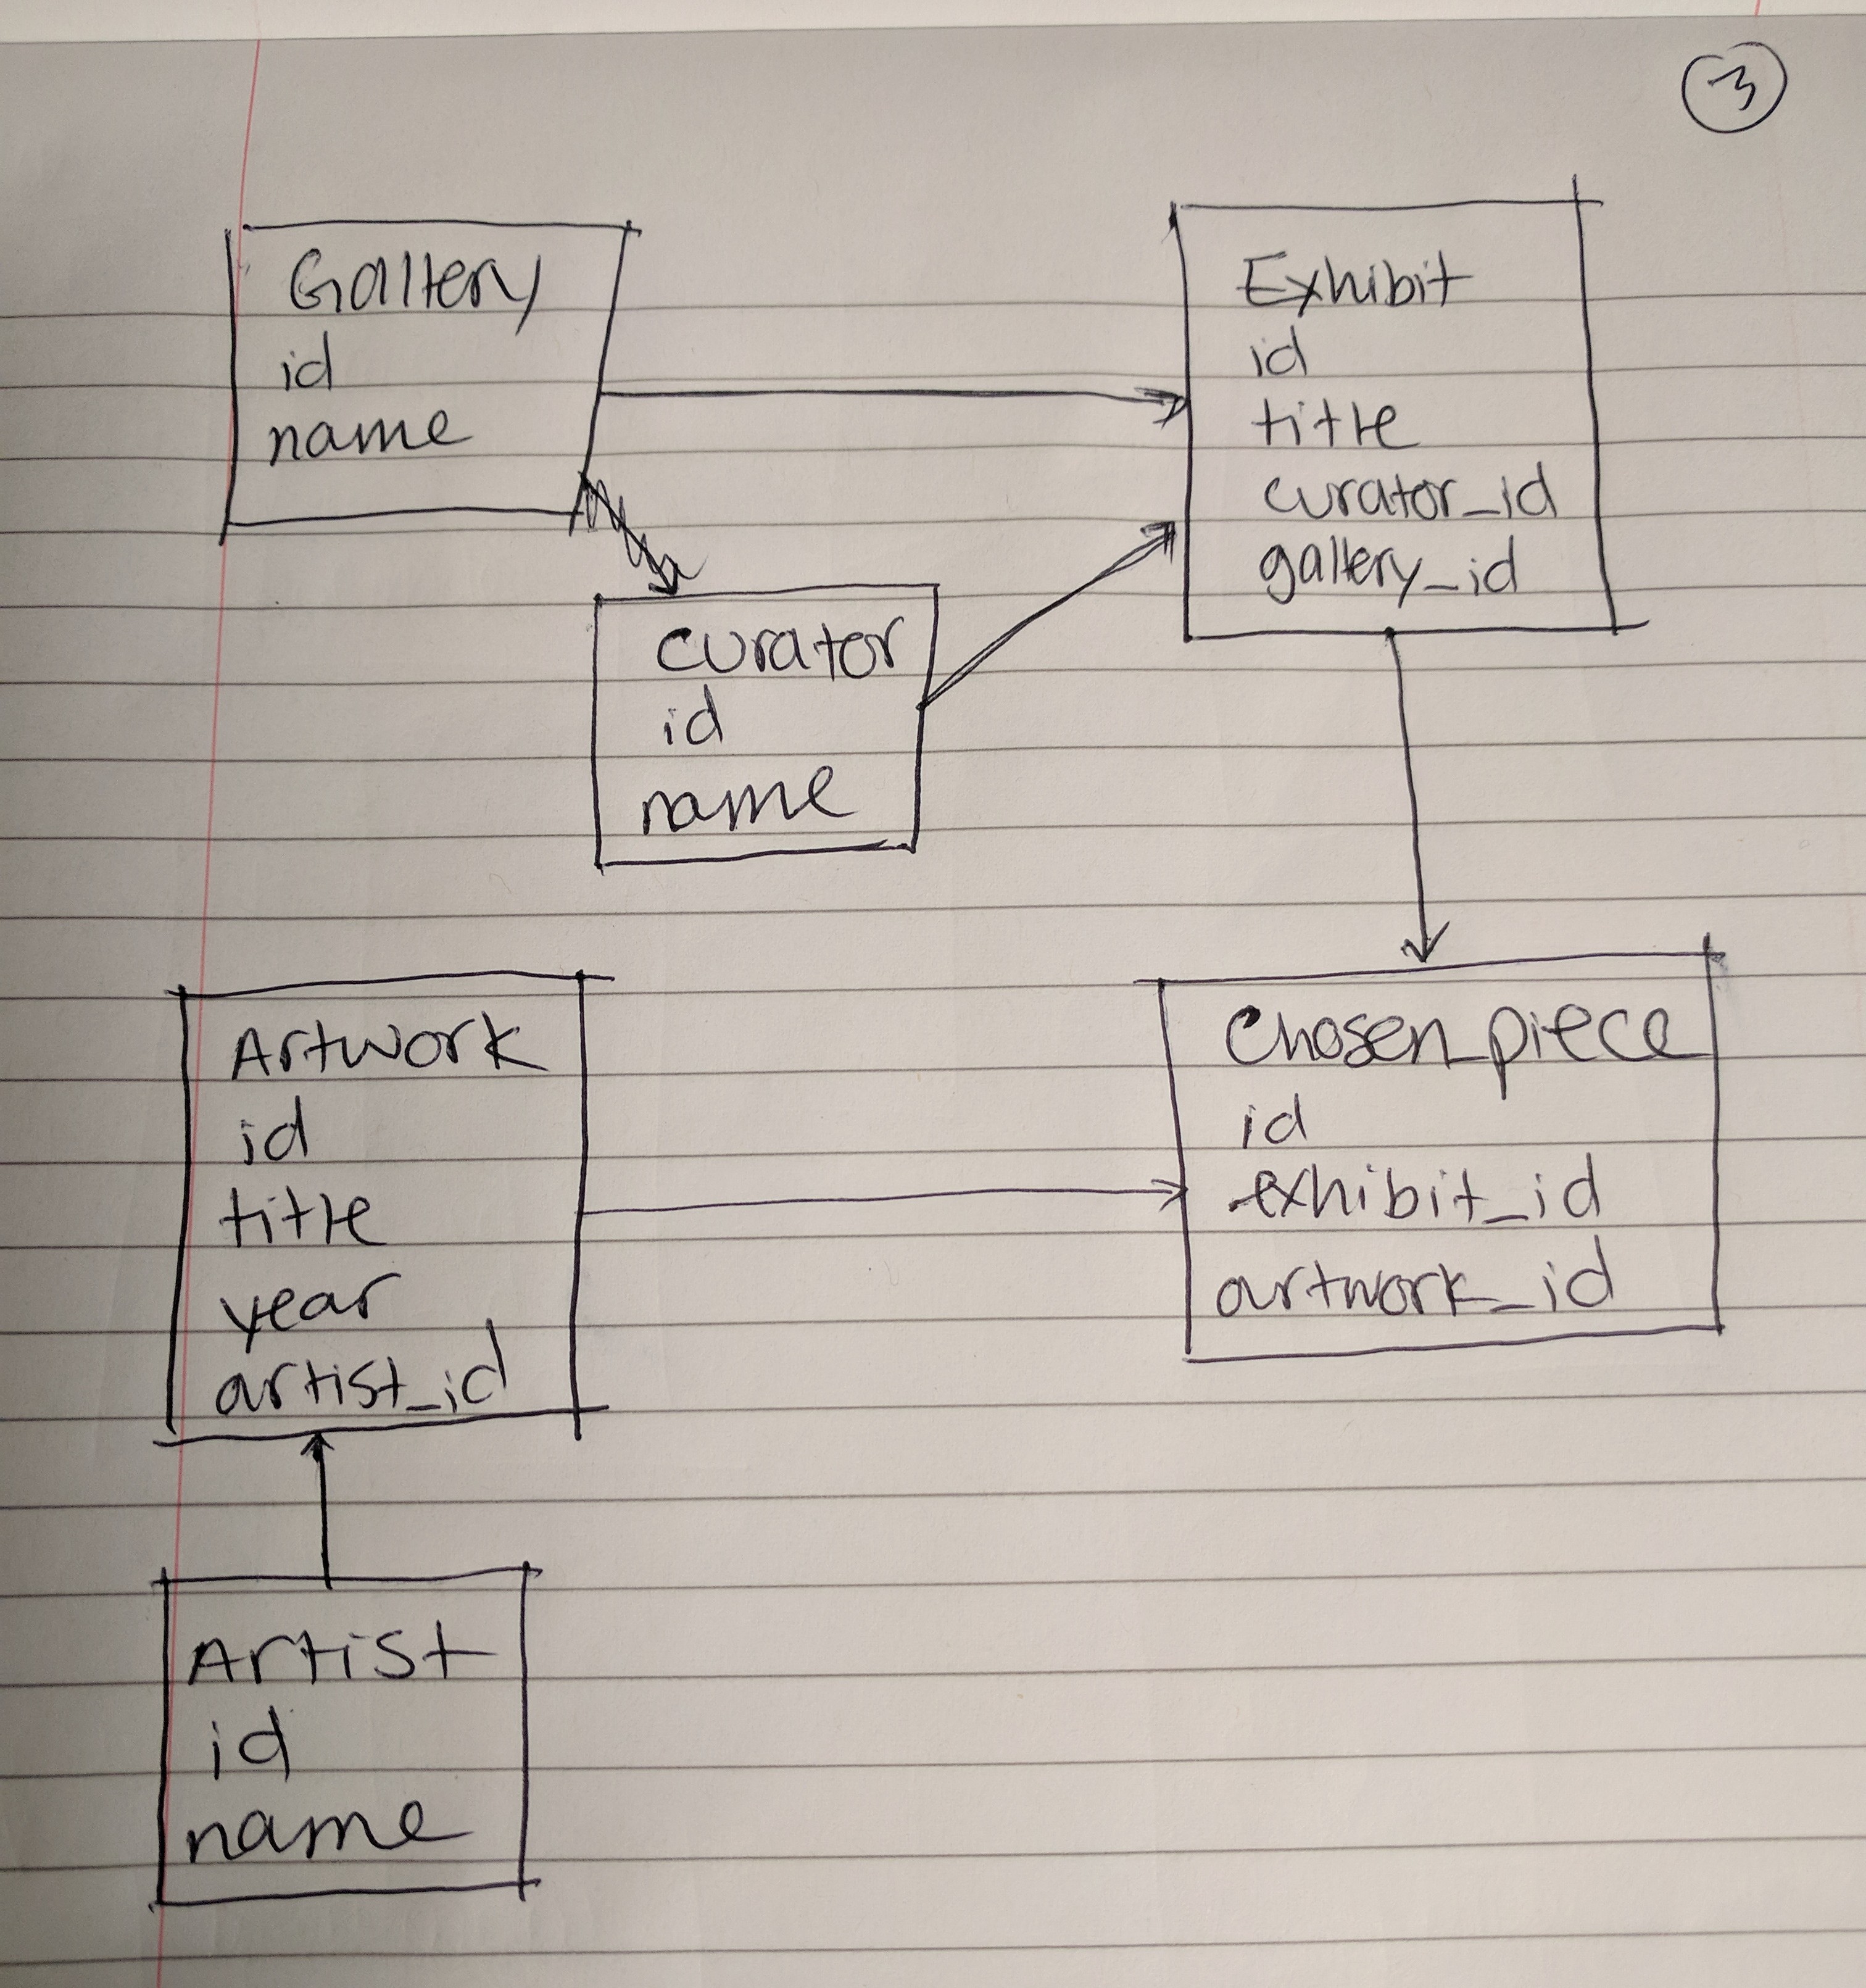 3
Gallery
id
name
Exhibit
id
title
curator_id
gallery_id
curator
id
name
Artwork
id
title
year
artist_id
Chosen_piece
id
exhibit_id
artwork_id
Artist
id
name